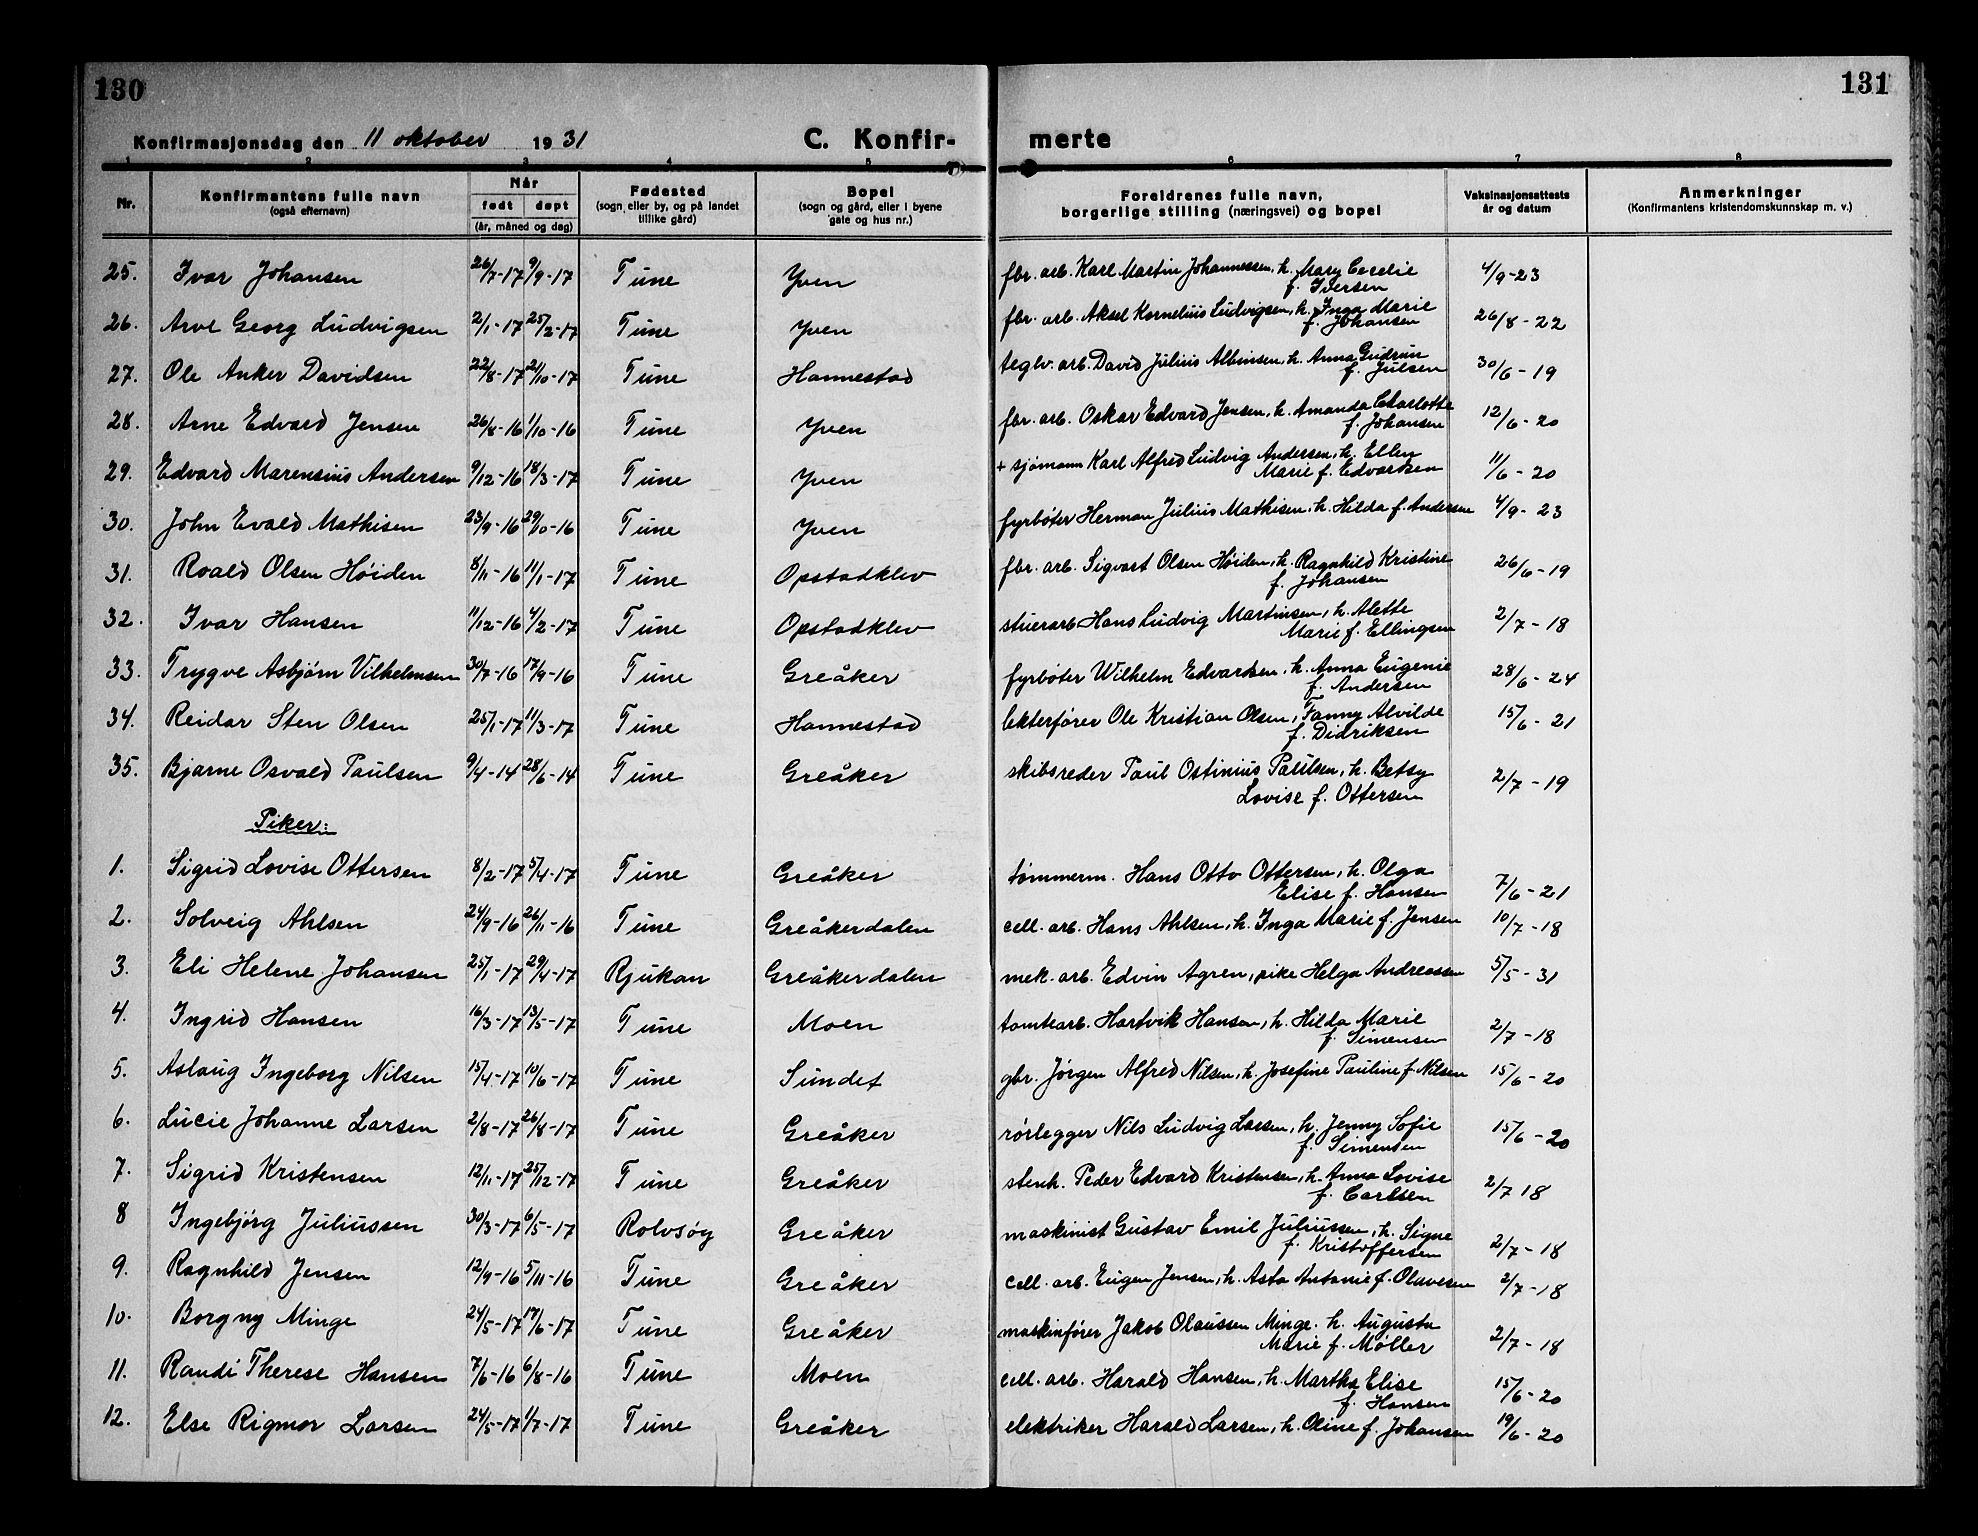 130
131
Konfirmasjonsdag den 11 oktober 1931
C. Konfir-
merte
1 2 3 4 5 6 7 8
Nr.
Konfirmantens fulle navn
(også efternavn)
Når
født døpt
(år, måned og dag)
Fødested
(sogn eller by, og på landet
tillike gård)
Bopel
(sogn og gård, eller i byene
gate og hus nr.)
Foreldrenes fulle navn,
borgerlige stilling (næringsvei) og bopel
Vaksinasjonsattests
år og datum
Anmerkninger
(Konfirmantens kristendomskunnskap m. v.)
25. Ivar Johansen 26/7-17 9/9-17 Tune Yven fbr. arb. Karl Martin Johannessen, h. Mary Cecelie 4/9-23
f. Iversen
26. Arve Georg Ludvigsen 2/1-17 25/2-17 Tune Yven fbr. arb. Aksel Kornelius Ludvigsen, h. Inga Marie 26/8-22
f. Johansen
27. Ole Anker Davidsen 22/8-17 21/10-17 Tune Hannestad teglv. arb. David Julius Albinsen, h. Anna Gudrun 30/6-19
f. Julsen
28. Arne Edvard Jensen 26/8-16 1/10-16 Tune Yven fbr. arb. Oskar Edvard Jensen, h. Amanda Charlotte 12/6-20
f. Johansen
29. Edvard Marensius Andersen 9/12-16 18/3-17 Tune Yven + sjømann Karl Alfred Ludvig Andersen, h. Ellen 11/6-20
Marie f. Edvardsen
30. John Evald Mathisen 23/9-16 29/10-16 Tune Yven fyrbøter Herman Julius Mathisen, h. Hilda f. Andersen 4/9-23
31. Roald Olsen Høiden 8/11-16 11/1-17 Tune Opstadklev fbr. arb. Sigvart Olsen Høiden, h. Ragnhild Kristine 26/6-19
f. Johansen
32. Ivar Hansen 11/12-16 4/2-17 Tune Opstadklev stuerarb Hans Ludvig Martinsen, h. Alette 2/7-18
Marie f. Ellingsen
33. Trygve Asbjørn Vilhelmsen 30/7-16 17/9-16 Tune Greåker fyrbøter Wilhelm Edvardsen, h. Anna Eugenie 28/6-24
f. Andersen
34. Reidar Sten Olsen 25/1-17 11/3-17 Tune Hannestad lekterfører Ole Kristian Olsen, Fanny Alvilde 15/6-21
f. Didriksen
35. Bjarne Osvald Paulsen 9/4-14 28/6-14 Tune Greåker skibsreder Paul Ostinius Paulsen, h. Betsy 2/7-19
Lovise f. Ottersen
Piker:
1. Sigrid Lovise Ottersen 8/2-17 5/4-17 Tune Greåker tømmerm. Hans Otto Ottersen, h. Olga 7/6-21
Elise f. Hansen
2. Solveig Ahlsen 24/9-16 26/11-16 Tune Greåkerdalen cell. arb. Hans Ahlsen, h. Inga Marie f. Jensen 10/7-18
3. Eli Helene Johansen 25/1-17 29/4-17 Rjukan Greåkerdalen mek. arb. Edvin Agren, pike Helga Andreassen 5/5-31
4. Ingrid Hansen 16/3-17 13/5-17 Tune Moen tomtearb. Hartvik Hansen, h. Hilda Marie 2/7-18
f. Simensen
5. Aslaug Ingeborg Nilsen 15/4-17 10/6-17 Tune Sundet gbr. Jørgen Alfred Nilsen, h. Josefine Pauline f. Nilsen 15/6-20
6. Lucie Johanne Larsen 2/8-17 26/8-17 Tune Greåker rørlegger Nils Ludvig Larsen, h. Jenny Sofie 15/6-20
f. Simensen
7. Sigrid Kristensen 12/11-17 25/12-17 Tune Greåker stenh. Peder Edvard Kristensen, h. Anna Lovise 2/7 18
f. Carlsen
8 Ingebjørg Juliussen 30/3-17 6/5-17 Rolvsøy Greåker maskinist Gustav Emil Juliussen, h. Signe 2/7-18
f. Kristoffersen
9. Ragnhild Jensen 12/9-16 5/11-16 Tune Greåker cell. arb. Eugen Jensen, h. Asta Antonie f. Olavesen 2/7-18
10. Borgny Minge 24/5-17 17/6-17 Tune Greåker maskinfører Jakob Olaussen Minge. h. Augusta 2/7-18
Marie f. Møller
11. Randi Therese Hansen 7/6-16 6/8-16 Tune Moen cell. arb. Harald Hansen, h. Martha Elise 15/6-20
f. Hansen
12. Else Rigmor Larsen 24/5-17 1/7-17 Tune Greåker elektriker Harald Larsen, h. Oline f. Johansen 19/6-20